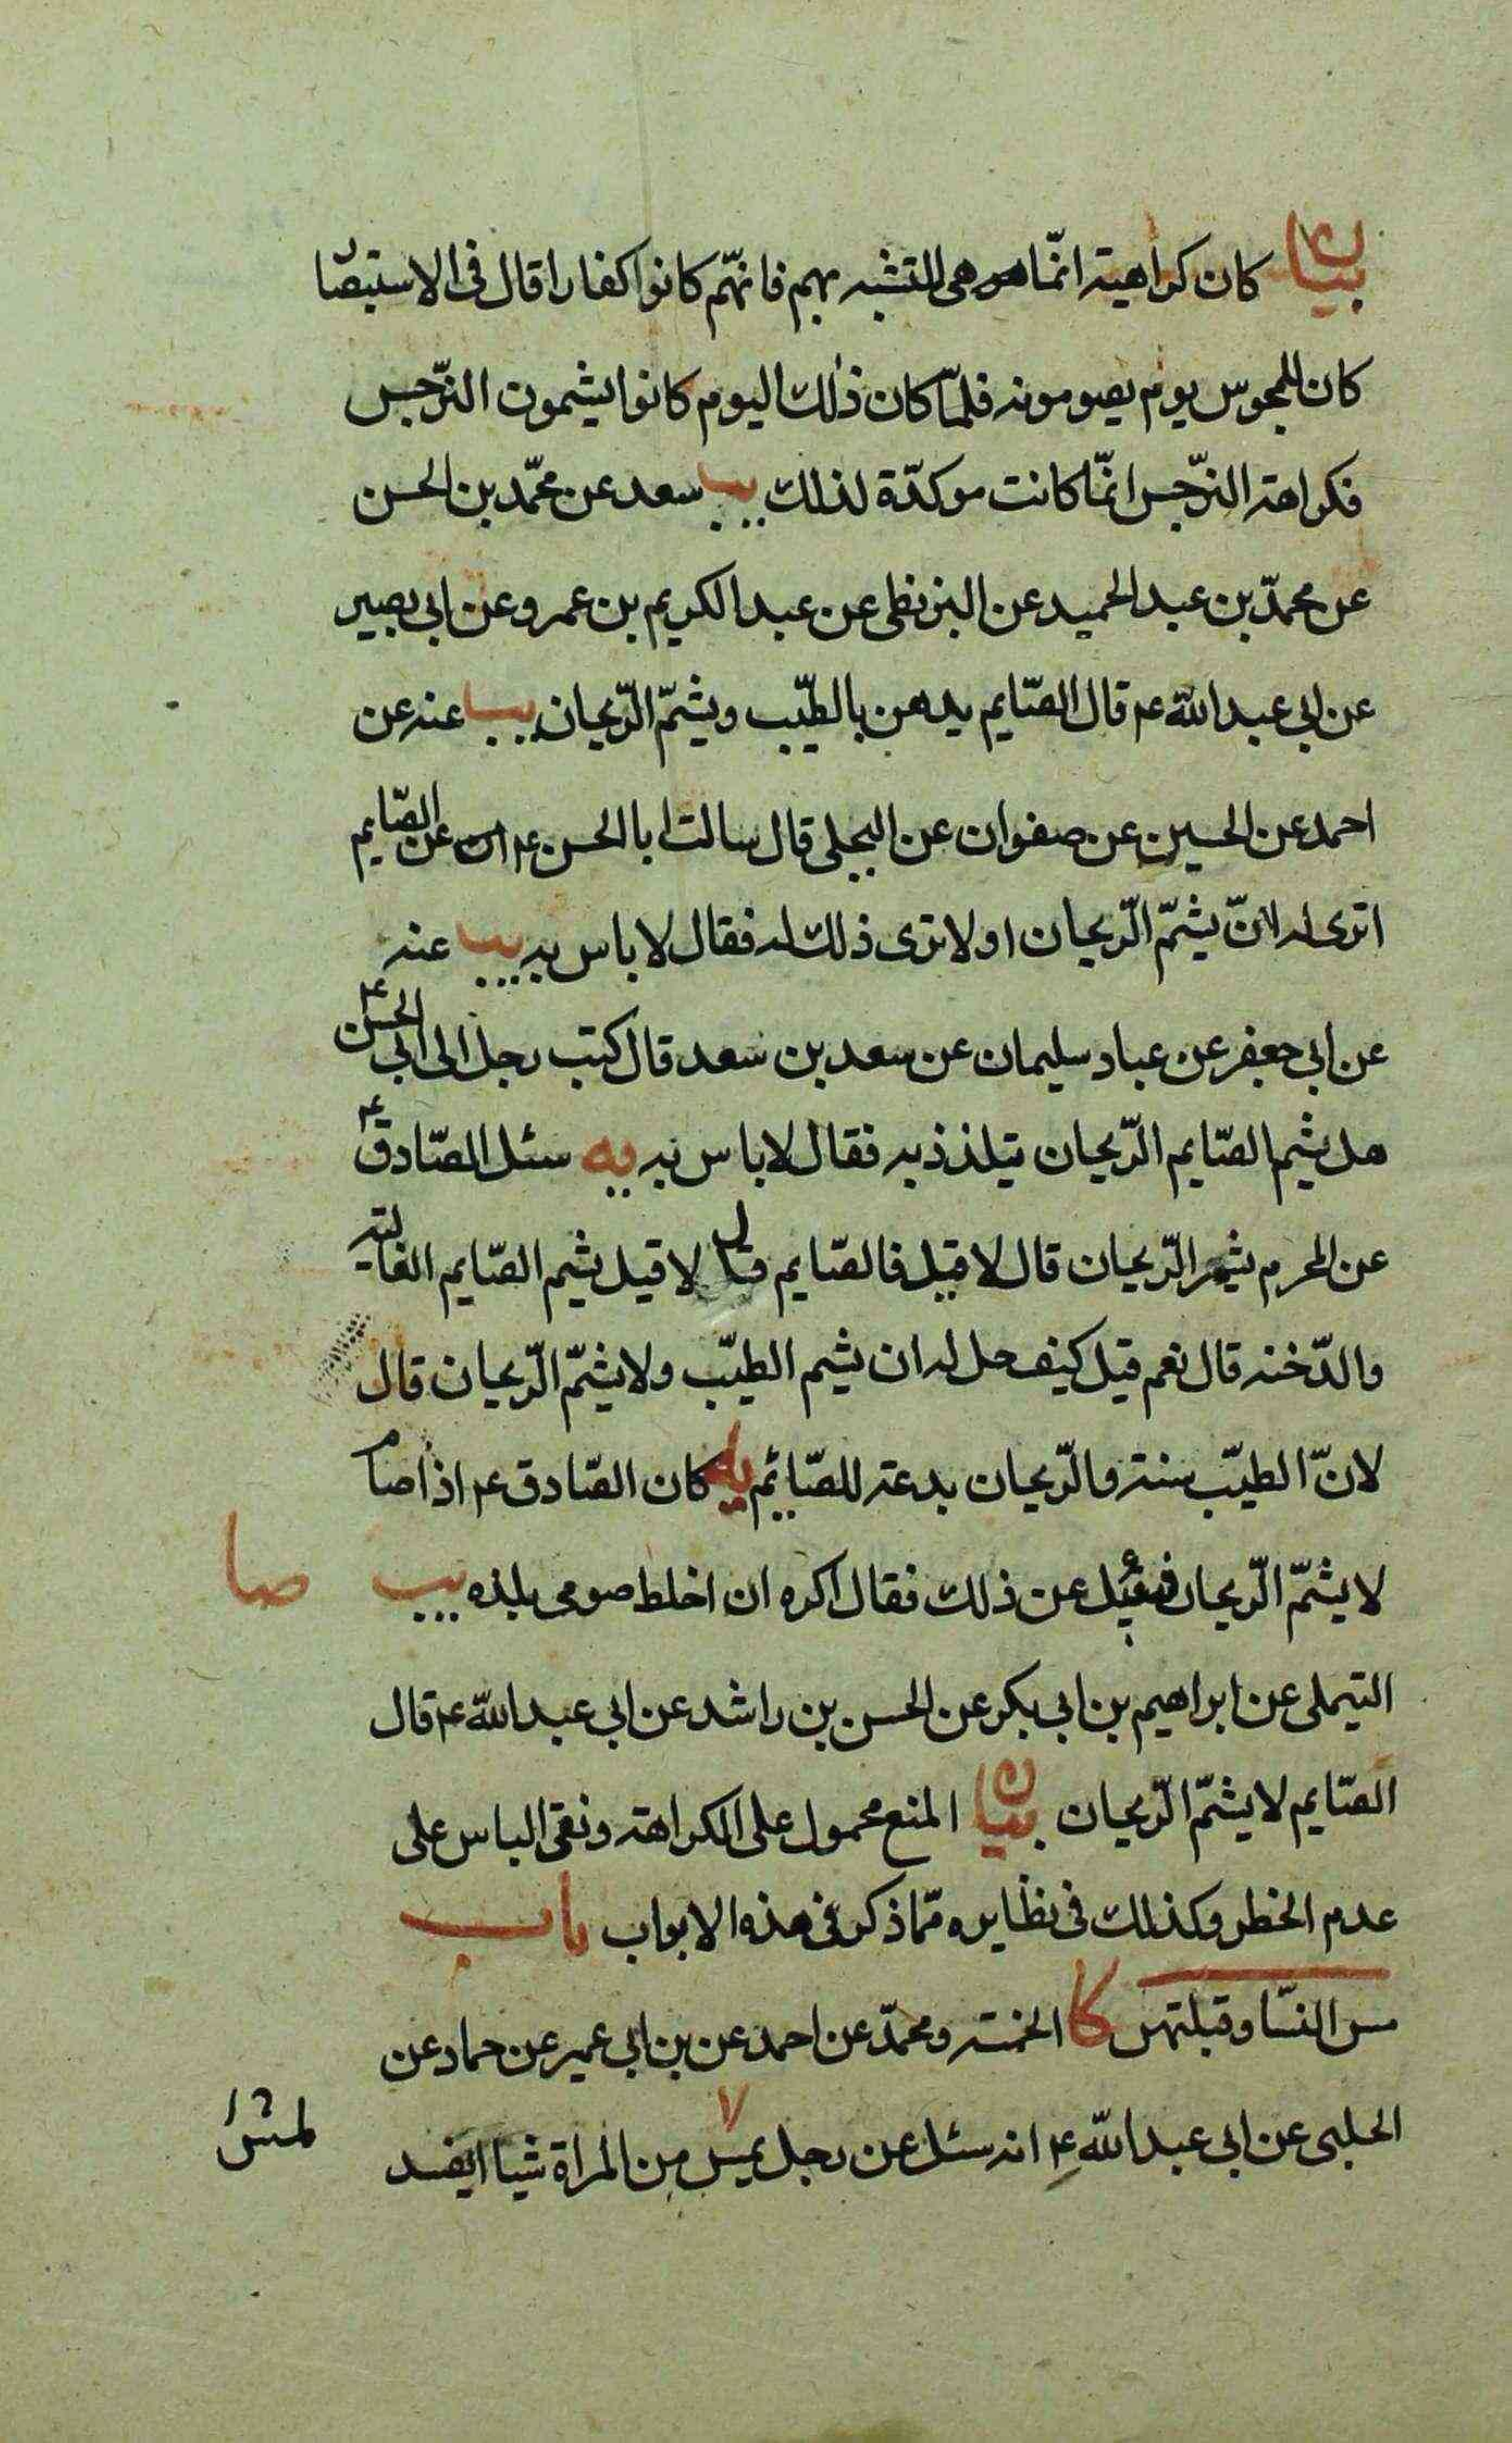 بيان كان كراهيته انّما هو هى للتشبه بهم فانهّم كانوا كفارا قال فى الاستبصا
كان للمجوس يوم يصومونه فلمّا كان ذلك اليوم كانوا يشمون النرّجس
فكراهته النرّجس انمّا كانت موكدّة لذلك يب سعد عن محمّد بن الحسن
عن محمدّ بن عبد الحميد عن البزنطى عن عبد الكريم بن عمرو عن ابى بصير
عن ابى عبد اللّه ع قال الصّايم يدهن بالطيّب ويشمّ الرّيحان يب عنه عن
احمد عن الحسين عن صفوان عن البجلى قال سالت ابا الحسن ع عن الصّايم
اترى له ان يشمّ الرّيحان او لا ترى ذلك له فقال لا باس به يب عنه
عن ابى جعفر عن عباد سليمان عن سعد بن سعد قال كتب رجل الى ابى الحسن ع
هل يشم الصّايم الرّيحان يتلذذ به فقال لا باس به يه سئل الصّادق ع
عن المحرم يشم الرّيحان قال لا قيل فالصّايم قال لا قيل يشم الصّايم الغاليه
والدّخنه قال نعم قيل كيف حل له ان يشم الطيّب ولا يشمّ الرّيحان قال
لانّ الطيّب سنته والرّيحان بدعته للصّائم يه كان الصّادق ع اذا صام
لا يشمّ الرّيحان فسئل عن ذلك فقال اكره ان اخلط صومى بلذه يب صا
التيملى عن ابراهيم بن ابى بكر عن الحسن بن راشد عن ابى عبد اللّه ع قال
الصّايم لا يشمّ الرّيحان بيان المنع محمول على الكراهته ونفى الباس على
عدم الخطر وكذلك فى نظايره ممّا ذكر فى هذه الابواب باب
مس النسّا وقبلتهن كا الخمسته ومحمدّ عن احمد عن بن ابى عمير عن حماد عن
الحلبى عن ابى عبد اللّه ع انه سئل عن رجل يمس من المراة شيا ايفسد